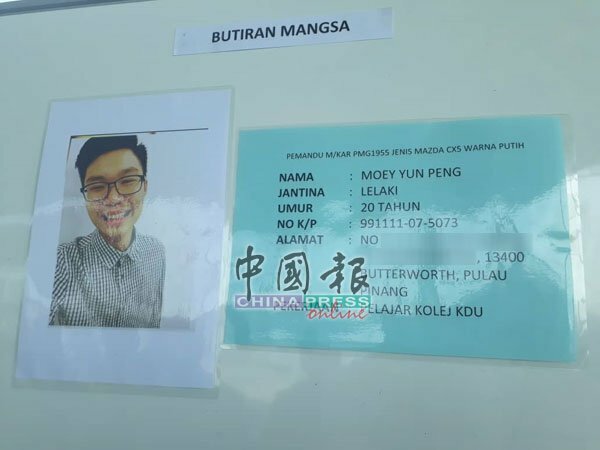 BUTIRAN MANGSA
PEMANDU M/KAR PMG1955 JENIS MAZDA CX5 WARNA PUTIH
NAMA : MOEY YUN PENG
JANTINA : LELAKI
UMUR : 20 TAHUN
NO K/P : 991111-07-5073
ALAMAT : NO
, 13400
BUTTERWORTH, PULAU
PINANG
PEKERJAAN PELAJAR KOLEJ KDU
中國報
CHINA PRESS
online